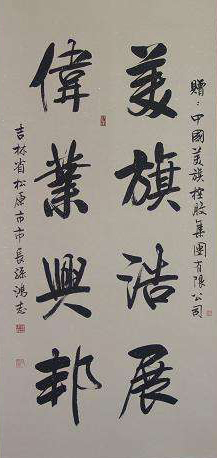 贈：中國美旗控股集團有限公司
美旗浩展
偉業興邦
吉林省松原市市長孫鴻志